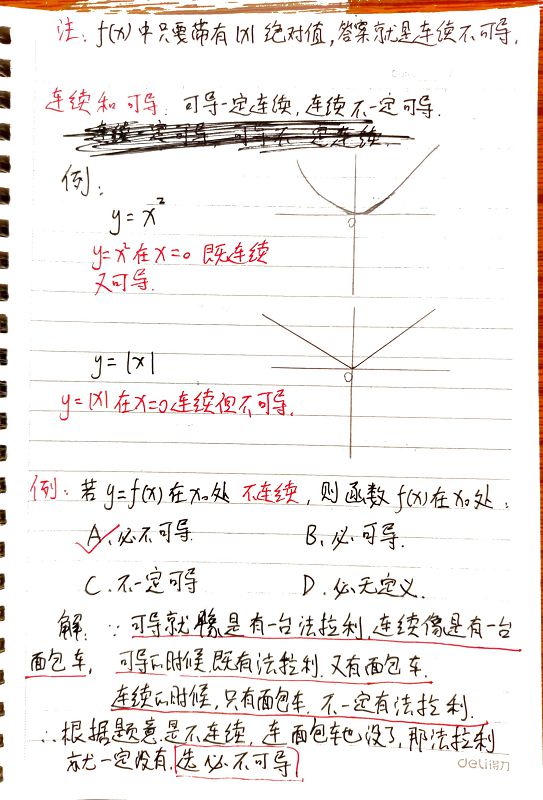 注: f(x)中只要带有|x|绝对值,答案就是连续不可导.
连续和可导: 可导一定连续,连续不一定可导.
连续一定可导, 可导不一定连续.
例:
y=x²
0
y=x²在x=0 既连续
又可导.
y=|x|
0
y=|x|在x=0连续但不可导.
例: 若y=f(x)在x₀处不连续,则函数f(x)在x₀处:
A、必不可导 B、必可导.
C.不一定可导 D.必无定义.
解: ∵可导就像是有一台法拉利,连续像是有一台
面包车, 可导的时候,既有法拉利.又有面包车.
连续的时候,只有面包车.不一定有法拉利.
∴根据题意是不连续,连面包车也没了,那法拉利
就一定没有.选必不可导
deli得力